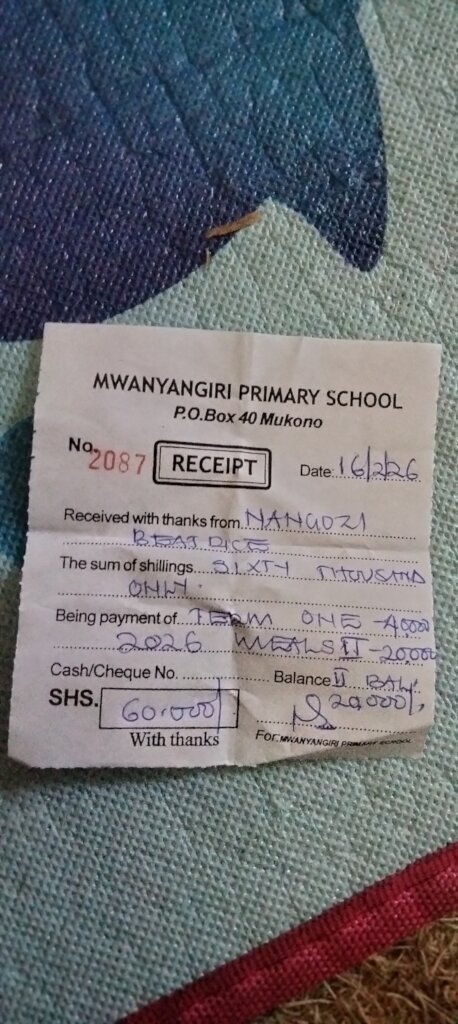 MWANYANGIRI PRIMARY SCHOOL
P.O.Box 40 Mukono
No. 2087 RECEIPT Date: 16/2/26
Received with thanks from NANGOZI
BEATRICE
The sum of shillings SIXTY THOUSAND
ONLY.
Being payment of TERM ONE -40,000
2026 MEALS II -20,000
Cash/Cheque No. Balance II BAL:
SHS. 60.000/= 20,000/=
With thanks For: MWANYANGIRI PRIMARY SCHOOL